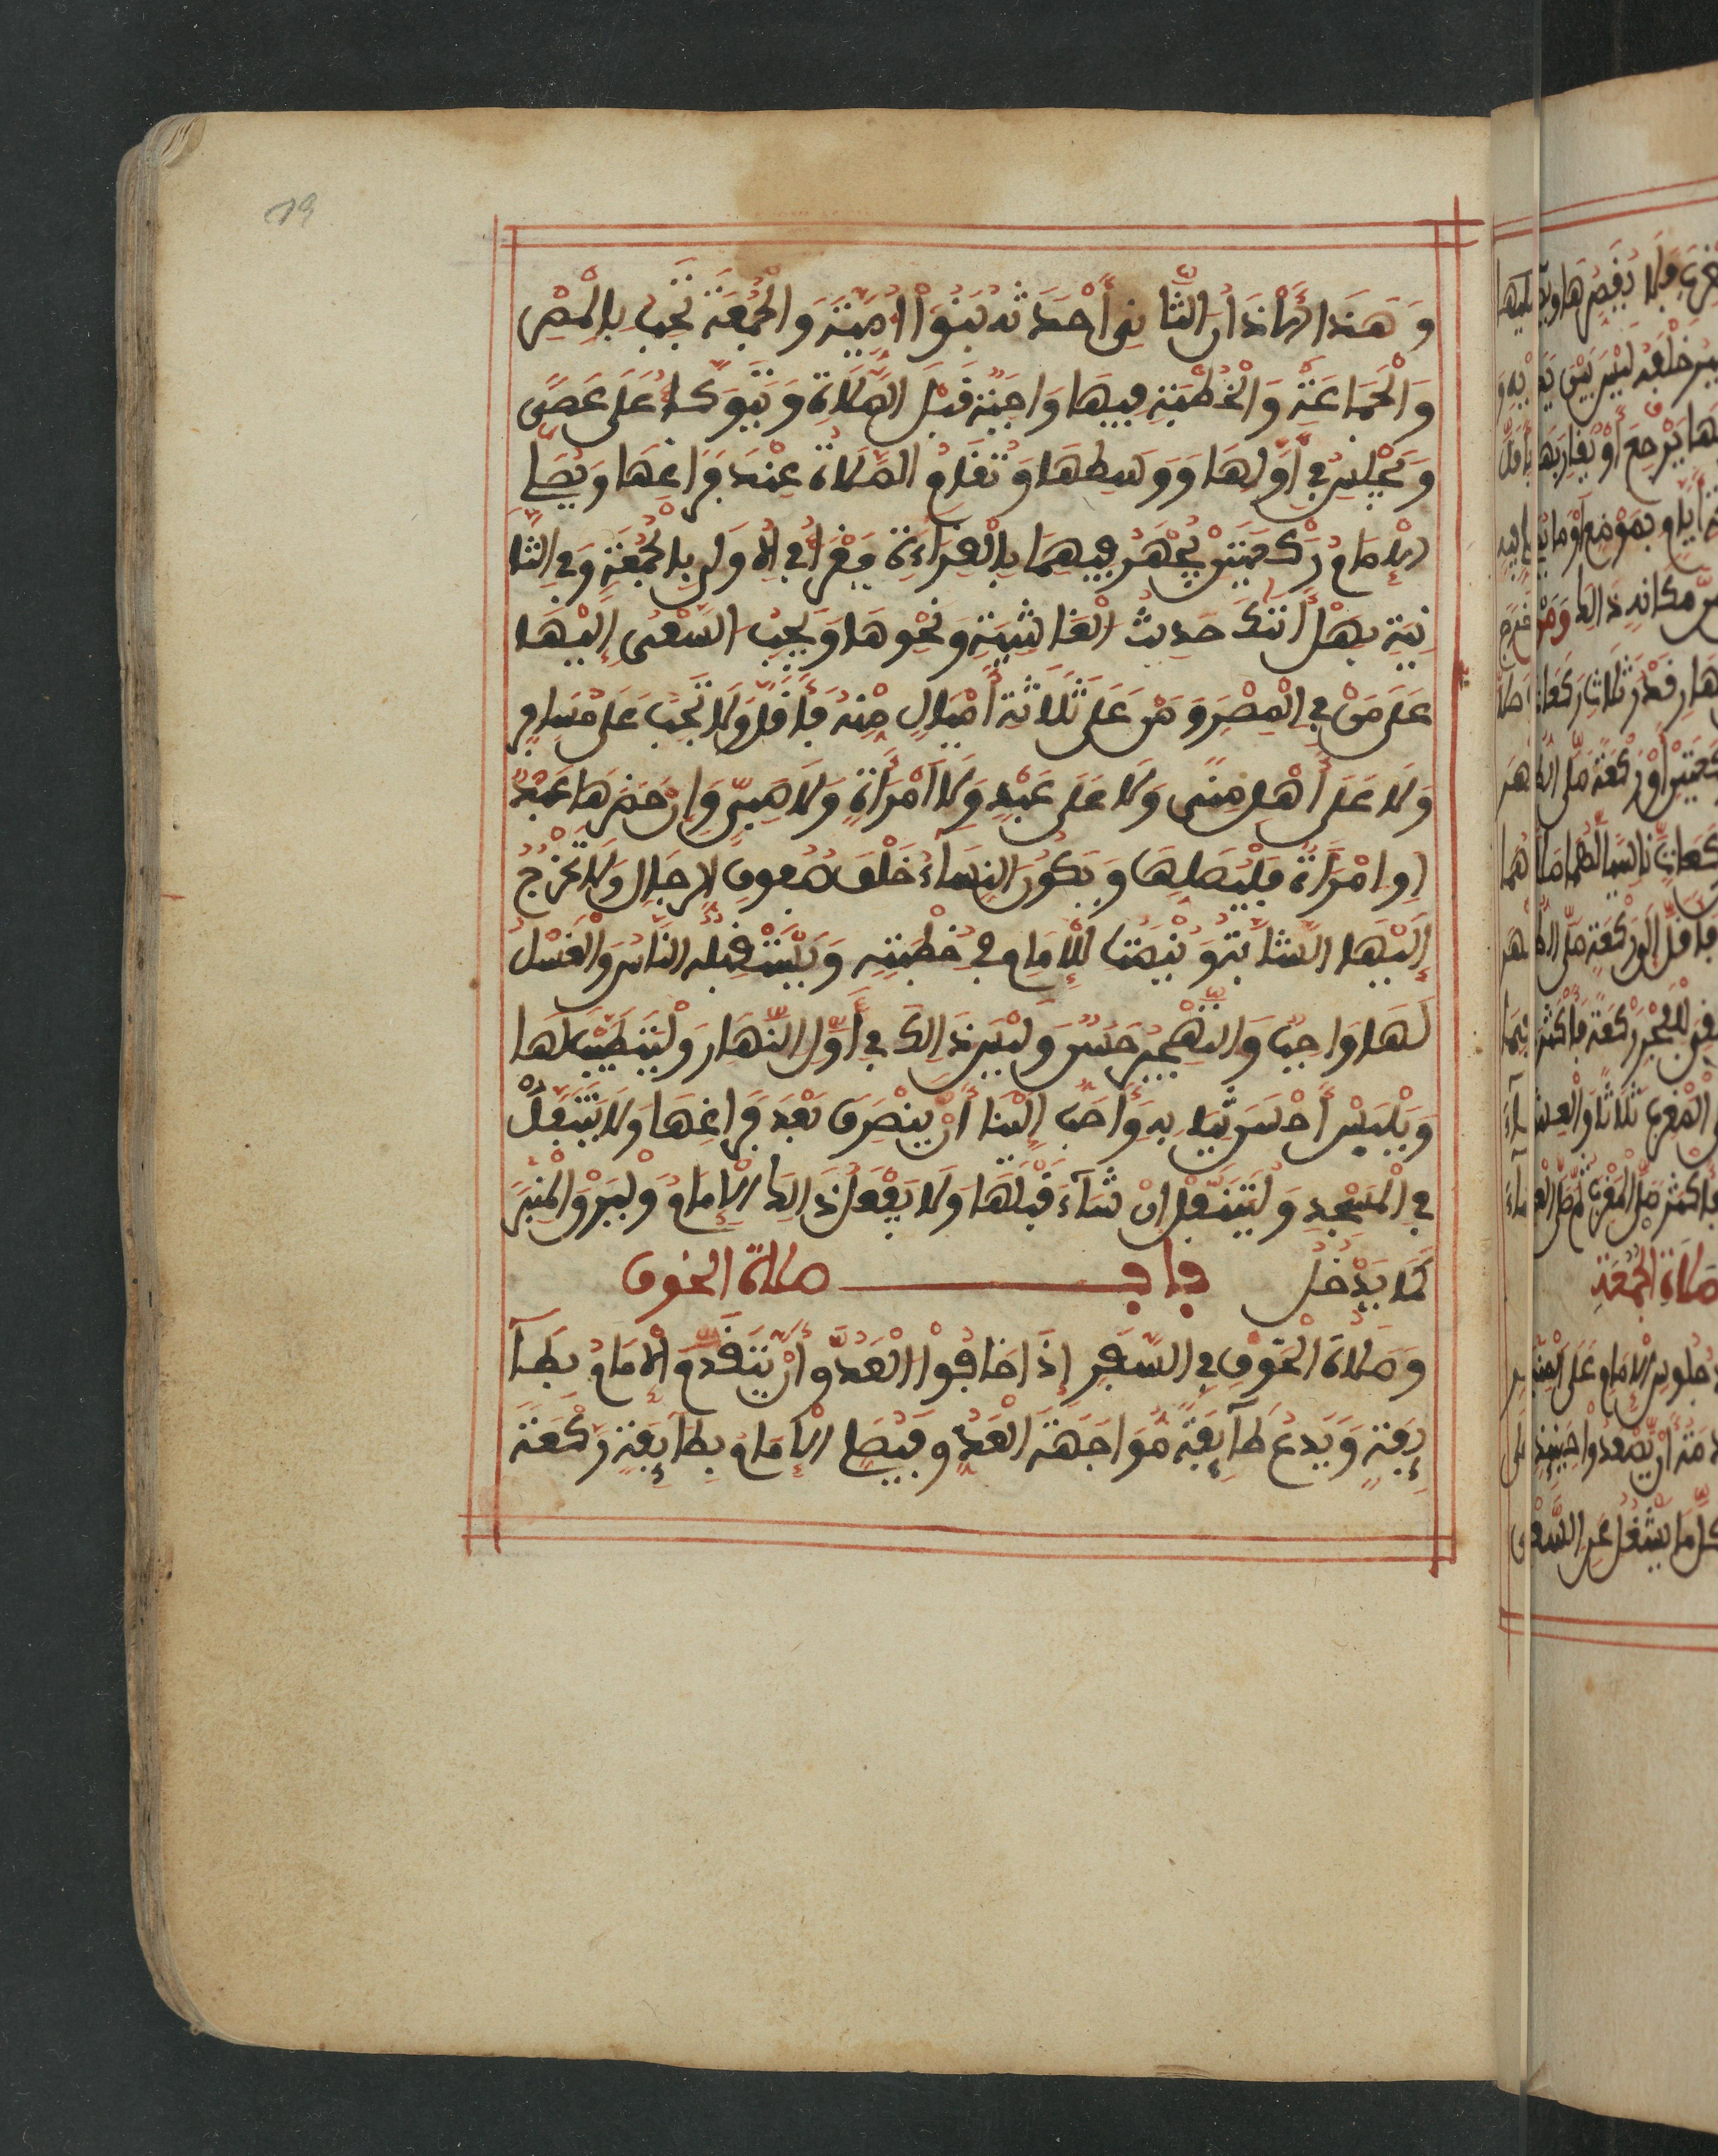 19
وَهَذَا الْأَذَانُ الثَّانِي أَحْدَثَهُ بَنُوا امَيَّةَ وَالْجُمُعَةُ تَجِبُ بِالْمِصْرِ
وَالْجَمَاعَةِ وَالْخُطْبَةِ فِيهَا وَاجِبَةٌ قَبْلَ الصَّلَاةِ وَيَتَوَكَّأُ عَلَى عَصًى
وَيَجْلِسُ فِي أَوَّلِهَا وَوَسَطِهَا وَتُقَامُ الصَّلَاةُ عِنْدَ فَرَاغِهَا وَيُصَلِّي
الْإِمَامُ رَكْعَتَيْنِ يُجْهَرُ فِيهِمَا بِالْقِرَاءَةِ يَقْرَأُ فِي الْأُولَى بِالْجُمُعَةِ وَفِي الثَّا
نِيَةِ بِهَلْ أَتَيكَ حَدِيثُ الْغَاشِيَةِ وَنَحْوِهَا وَيَجِبُ السَّعْيُ إِلَيْهَا
عَلَى مَنْ فِي الْمِصْرِ وَمَنْ عَلَى ثَلَاثَةِ أَمْيَالٍ مِنْهُ فَأَقَلَّ وَلَا تَجِبُ عَلَى مُسَافِرٍ
وَلَا عَلَى أَهْلِ مِنًى وَلَا عَلَى عَبْدٍ وَلَا امْرَأَةٍ وَلَا صَبِيٍّ وَإِنْ حَضَرَهَا عَبْدٌ
اوِ امْرَأَةٌ فَلْيُصَلِّهَا وَيَكُونُ النِّسَاءُ خَلْفَ صُفُوفِ الرِّجَالِ وَلَا تَخْرُجُ
إِلَيْهَا الشَّابَّةُ وَيُنْصَتُ لِلْإِمَامِ فِي خُطْبَتِهِ وَيَسْتَقْبِلُهُ النَّاسُ وَالْغُسْلُ
لَهَا وَاجِبٌ وَالتَّهْجِيرُ حَسَنٌ وَلَيْسَ ذَالِكَ فِي أَوَّلِ النَّهَارِ وَلْيَتَطَيَّبْ لَهَا
وَيَلْبَسْ أَحْسَنَ ثِيَابِهِ وَأَحَبُّ إِلَيْنَا أَنْ يَنْصَرِفَ بَعْدَ فَرَاغِهَا وَلَا يَتَنَفَّلْ
فِي الْمَسْجِدِ وَلْيَتَنَفَّلْ انْ شَاءَ قَبْلَهَا وَلَا يَفْعَلْ ذَالِكَ الْإِمَامُ وَلْيَرْقَ الْمِنْبَرَ
كَمَا يَدْخُلُ باب صلاة الخوف
وَصَلَاةُ الْخَوْفِ فِي السَّفَرِ إِذَا خَافُوا الْعَدُوَّ أَنْ يَتَقَدَّمَ الْإِمَامُ بِطَا
ئِفَةٍ وَيَدَعَ طَائِفَةً مُوَاجَهَةَ الْعَدُوِّ فَيُصَلِّي الْإِمَامُ بِطَائِفَةٍ رَكْعَةً